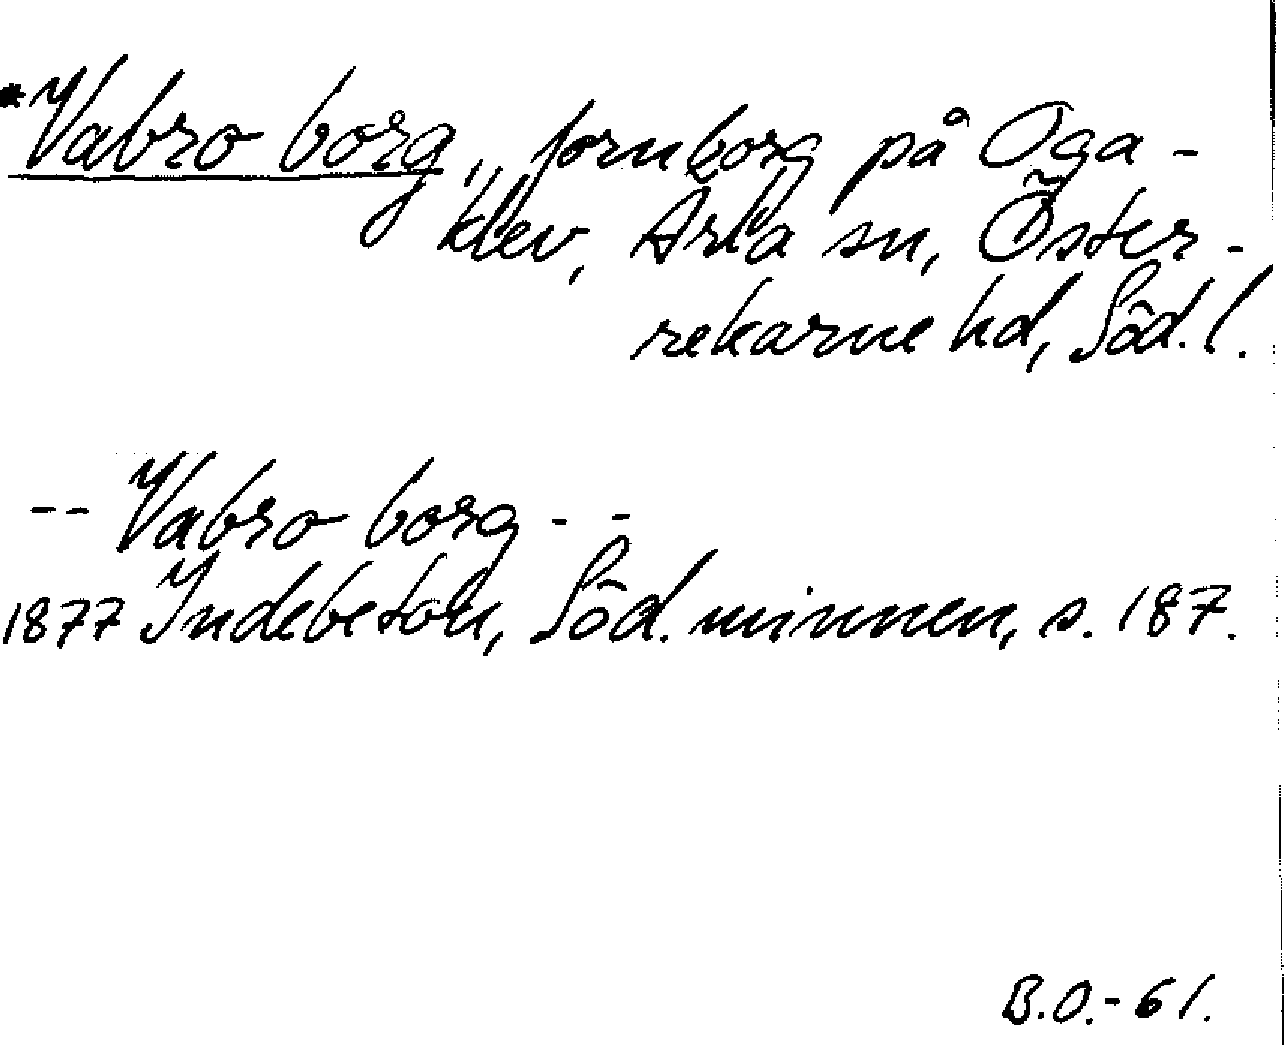 *Vabro borg, fornborg på Oga-
klev, Ärla sn, Öster-
rekarne hd, Söd. l.
-- Vabro borg - -
1877 Indebetou, Söd. minnen, s. 187.
B.O.-61.